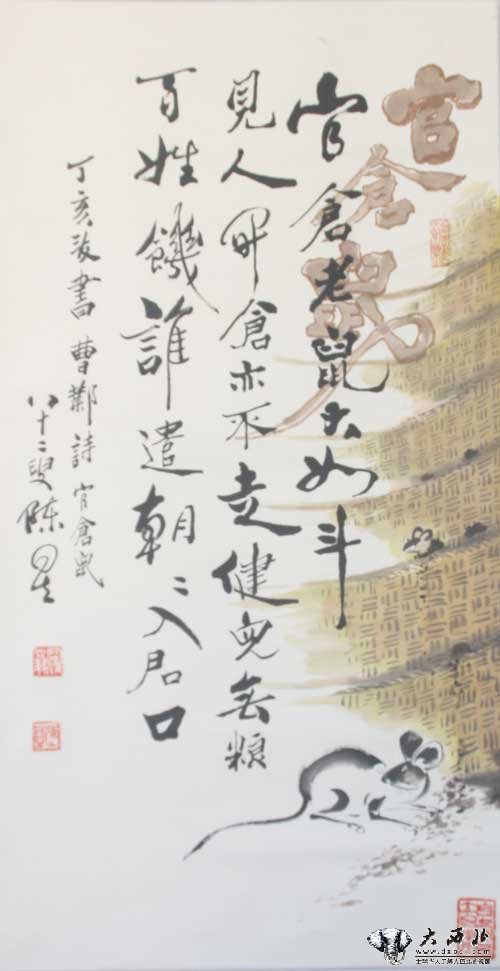 官倉鼠
官倉老鼠大如斗
見人開倉亦不走健兒無粮
百姓饑誰遣朝〻入君口
丁亥書曹鄴詩官倉鼠
八十二叟陈
大西北